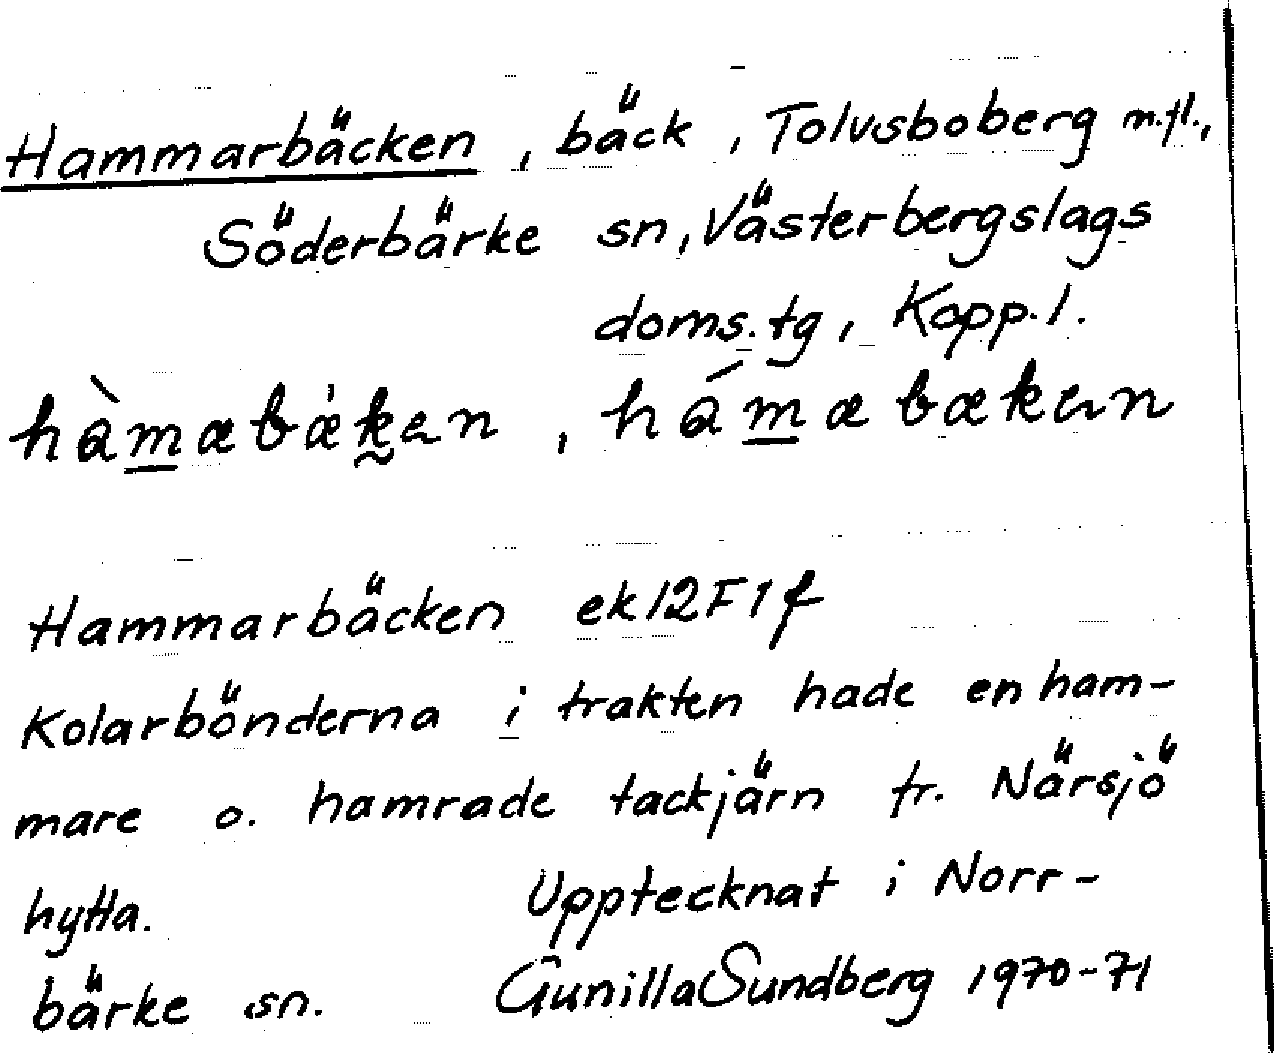 Hammarbäcken, bäck, Tolvsboberg m.fl.,
Söderbärke sn, Västerbergslags
doms.tg, Kopp.l.
hàmabä̀kan, hámabækan
Hammarbäcken ek12F1f
Kolarbönderna i trakten hade en ham-
mare o. hamrade tackjärn fr. Närsjö
hytta. Upptecknat i Norr-
bärke sn. Gunilla Sundberg 1970-71